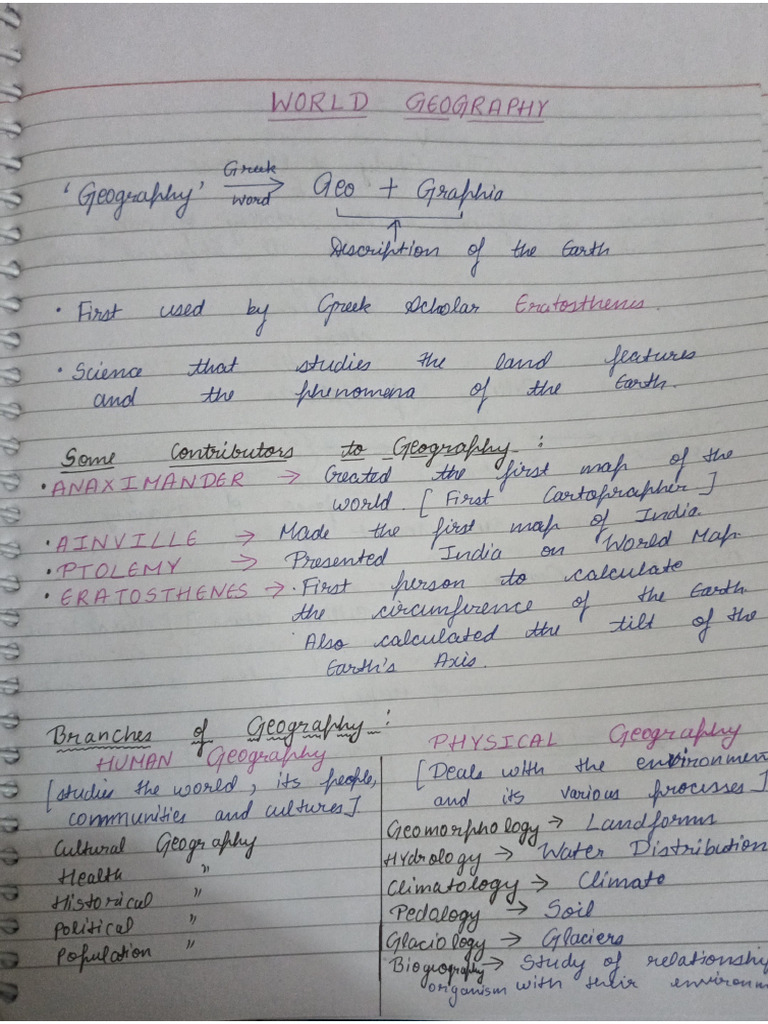 WORLD GEOGRAPHY
'Geography' Greek Word → Geo + Graphia
Description of the Earth
• First used by Greek Scholar Eratosthenes.
• Science that studies the land features
and the phenomena of the Earth.
Some Contributors to Geography :
• ANAXIMANDER → Created the first map of the
world. [First Cartographer]
• AINVILLE → Made the first map of India
• PTOLEMY → Presented India on World Map.
• ERATOSTHENES → • First person to calculate
the circumference of the Earth
• Also calculated the tilt of the
Earth's Axis.
Branches of Geography :
HUMAN Geography
[studies the world, its people,
communities and cultures]
Cultural Geography
Health "
Historical "
Political "
Population "
PHYSICAL Geography
[Deals with the environmen
and its various processes]
Geomorphology → Landforms
Hydrology → Water Distribution
Climatology → Climate
Pedalogy → Soil
Glaciology → Glaciers
Biogeography → Study of relationship
organism with their environm